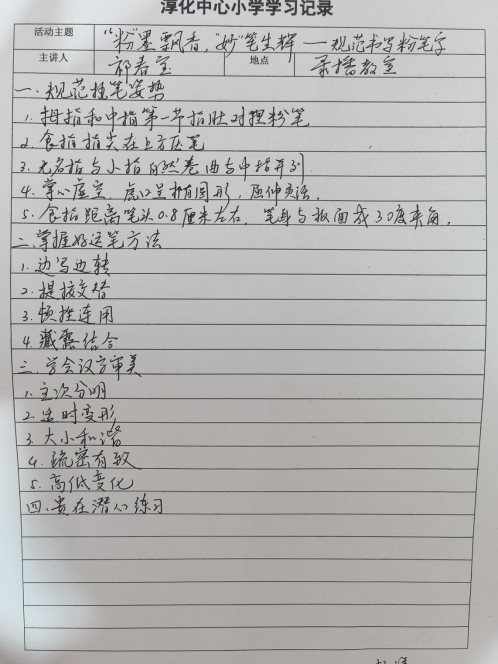 淳化中心小学学习记录
活动主题 “粉”墨飘香，“妙”笔生辉—规范书写粉笔字
主讲人 祁春宝 地点 录播教室
一、规范握笔姿势
1. 拇指和中指第一节指肚对捏粉笔
2. 食指指尖在上方压笔
3. 无名指与小指自然卷曲与中指并列
4. 掌心虚空，虎口呈椭圆形，屈伸灵活。
5. 食指距离笔头0.8厘米左右，笔身与板面成30度夹角。
二、掌握好运笔方法
1. 边写边转
2. 提按交替
3. 顿挫连用
4. 藏露结合
三、学会汉字审美
1. 主次分明
2. 适时变形
3. 大小和谐
4. 疏密有致
5. 高低变化
四、贵在潜心练习